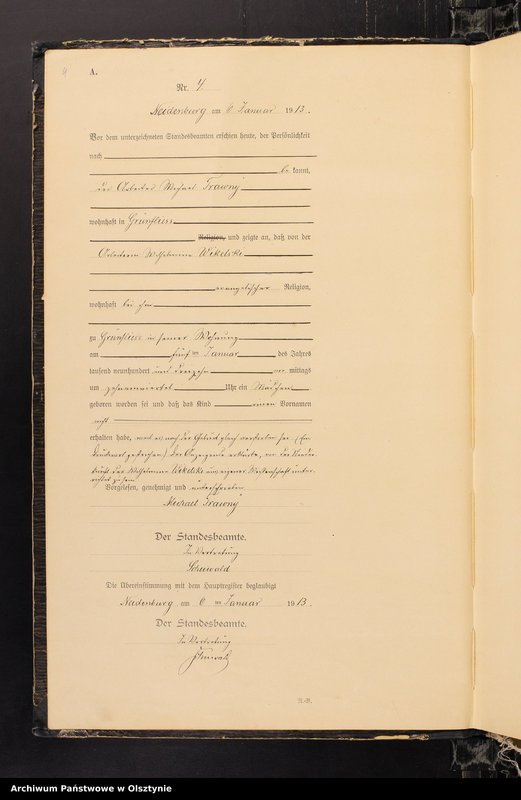 A.
Nr. 4
Neidenburg am 6 Januar 1913.
Vor dem unterzeichneten Standesbeamten erschien heute, der Persönlichkeit
nach
be kannt,
der Arbeiter Michael Trawny
wohnhaft in Grünfliess
Religion, und zeigte an, daß von der
Arbeiterin Wilhelmine Wikelski
evangelischer Religion,
wohnhaft bei ihm
zu Grünfliess in seiner Wohnung
am fünf ten Januar des Jahres
tausend neunhundert und dreizehn mittags
um Uhr ein Mädchen
geboren worden sei und daß das Kind einen Vornamen
nicht
erhalten habe, weil es nach der Geburt gleich verstorben sei. (Ein
Der Anzeigende erklärte, von der Nieder
kunft der Wilhelmine Wikelski aus eigener Wissenschaft unter
richtet zu sein.
Vorgelesen, genehmigt und unterschrieben
Michael Trawny
Der Standesbeamte.
In Vertretung
Die Übereinstimmung mit dem Hauptregister beglaubigt
Neidenburg am 6 ten Januar 1913.
Der Standesbeamte.
In Vertretung
Archiwum Państwowe w Olsztynie